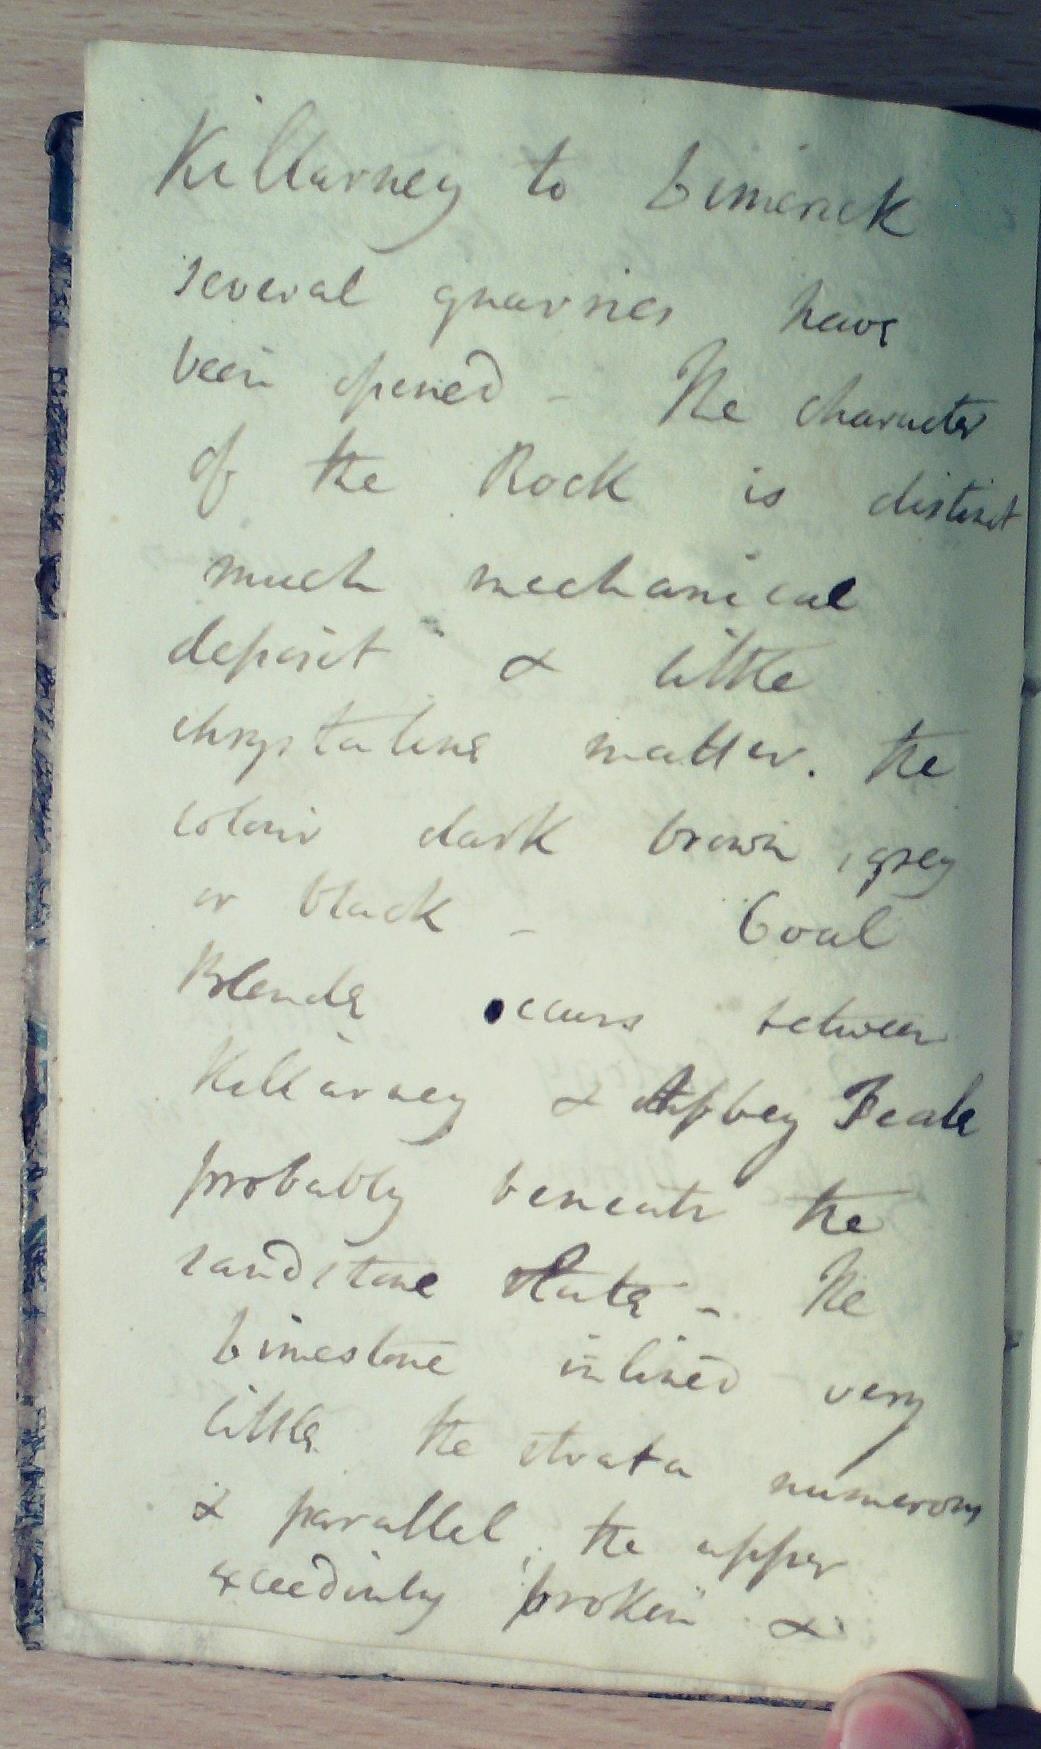 Killarney to Limerick
several quarries have
been opened - The character
of the Rock is distinct
much mechanical
deposit & little
chrystaline matter. the
colour dark brown, grey
or black - Coal
Blende occurs between
Killarney & Abbey Feale
probably beneath the
sandstone - The
Limestone inlined very
little the strata numerous
& parallel, the upper
exceedinly broken &